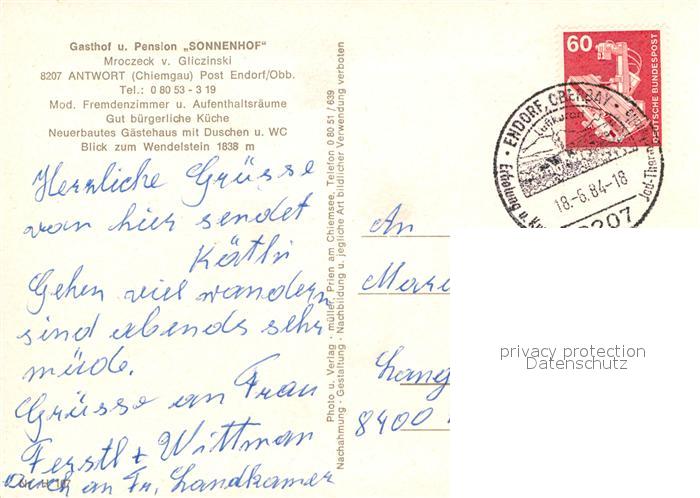 Gasthof u. Pension „SONNENHOF"
Mroczeck v. Gliczinski
8207 ANTWORT (Chiemgau) Post Endorf/Obb.
Tel.: 0 80 53 - 3 19
Mod. Fremdenzimmer u. Aufenthaltsräume
Gut bürgerliche Küche
Neuerbautes Gästehaus mit Duschen u. WC
Blick zum Wendelstein 1838 m
Herzliche Grüsse
von hier sendet
Kätln
Gehen viel wandern
sind abends sehr
müde.
Grüsse an Frau
Ferstl + Wittman
Auch an Fr. Landkamer
Photo u. Verlag · müller, Prien am Chiemsee, Telefon 0 80 51 / 639
Nachahmung · Gestaltung · Nachbildung u. jegliche Art bildlicher Verwendung verboten
60
DEUTSCHE BUNDESPOST
ENDORF, OBERBAY
Luftkurort
Erholung u.
Jod-Ther
18.-6.84-18
8207
An
Mare
Lang
8400
privacy protection
Datenschutz